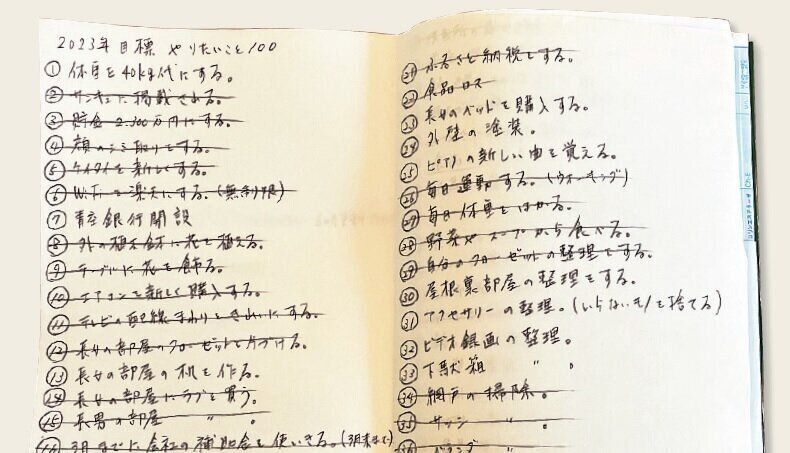 2023年 目標 やりたいこと100
① 体重を40kg代にする。
② サンキュ!に掲載される。
③ 貯金 2,300万円にする。
④ 顔のシミ取りをする。
⑤ ケイタイを新しくする。
⑥ WiFiを楽天にする。(無制限)
⑦ 青空銀行開設
⑧ 外の植木鉢に花を植える。
⑨ テーブルに花を飾る。
⑩ エアコンを新しく購入する。
⑪ テレビの配線まわりをきれいにする。
⑫ 長女の部屋のクローゼットを片づける。
⑬ 長女の部屋の机を作る。
⑭ 長女の部屋にラグを買う。
⑮ 長男の部屋 〃 。
⑯ 3月までに会社の補助金を使いきる。(3月末まで)
㉑ ふるさと納税をする。
㉒ 食品ロス
㉓ 長女のベッドを購入する。
㉔ 外壁の塗装。
㉕ ピアノの新しい曲を覚える。
㉖ 毎日運動する。(ウォーキング)
㉗ 毎日体重をはかる。
㉘ 野菜やスープから食べる。
㉙ 自分のクローゼットの整理をする。
㉚ 屋根裏部屋の整理をする。
㉛ アクセサリーの整理。(いらないモノを捨てる)
㉜ ビデオ録画の整理。
㉝ 下駄箱 〃 。
㉞ 網戸の掃除。
㉟ サッシ 〃 。
㊱ ベランダ 〃